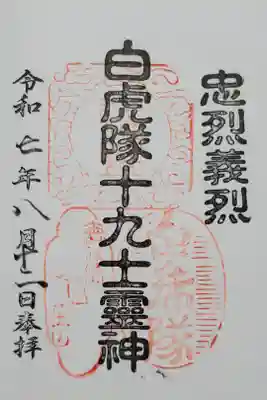 忠烈義烈
白虎隊十九士霊神
令和七年八月十二日奉拝